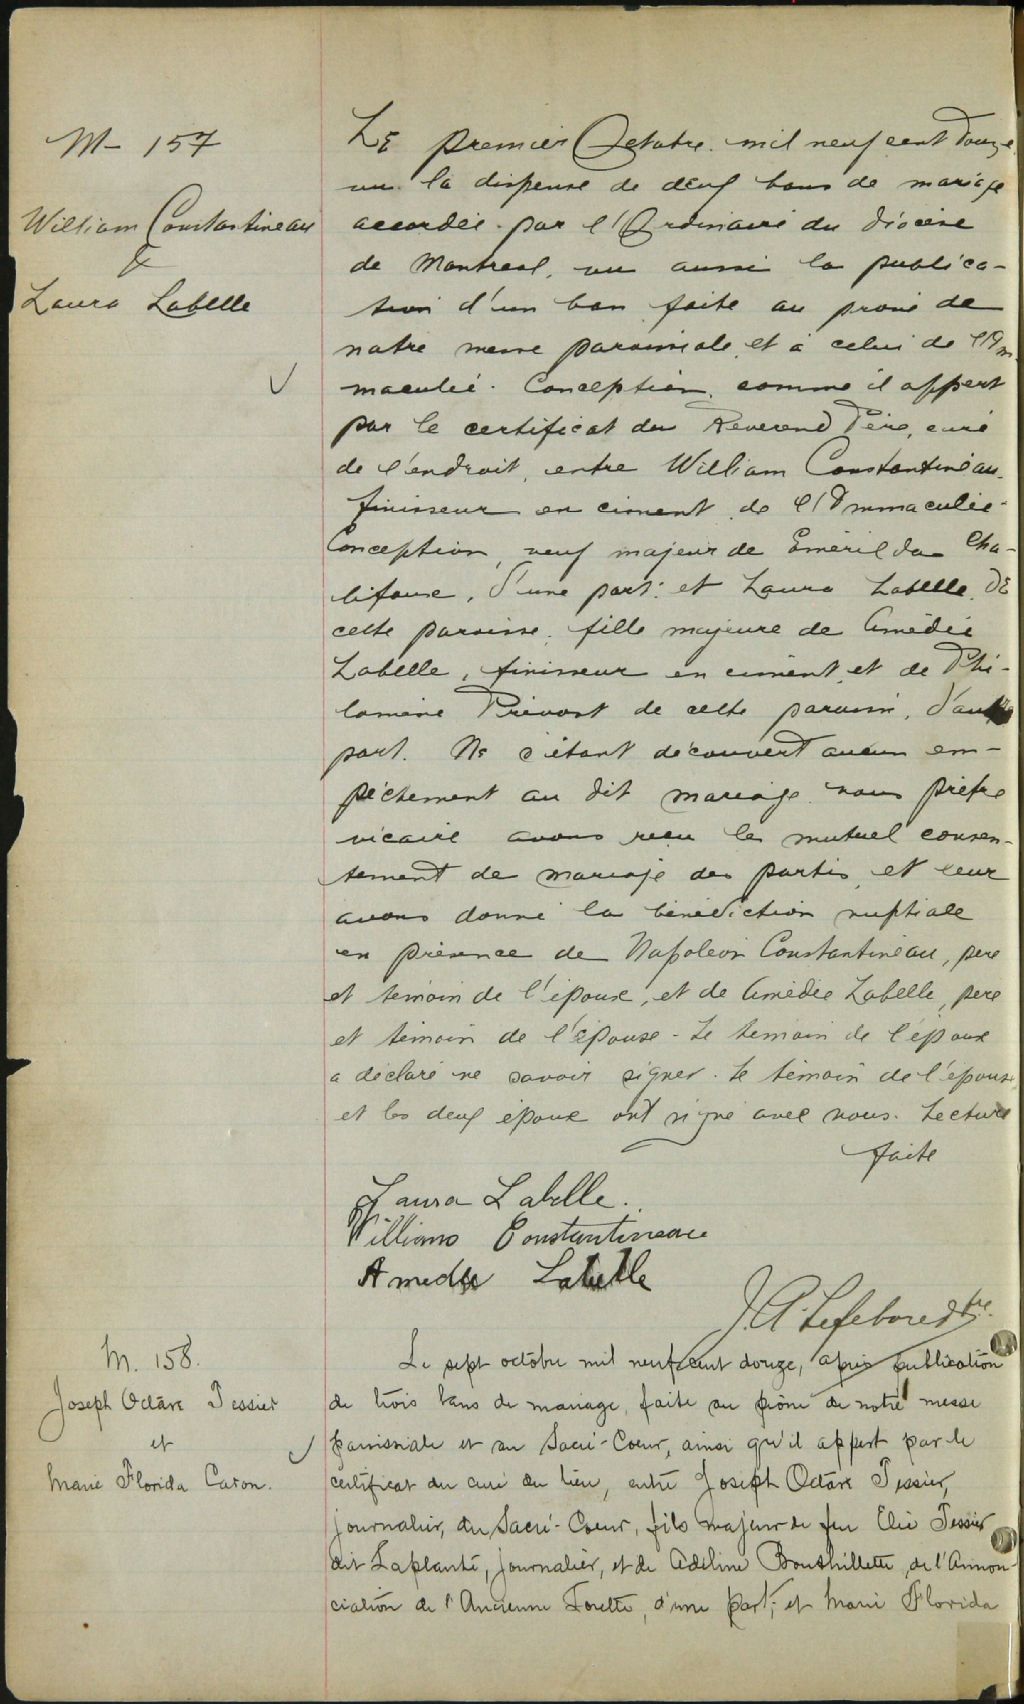 M— 157
William Constantineau
&
Laura Labelle
LE premier Octobre mil neuf cent douze
vu la dispense de deux bans de mariage
accordée par l'Ordinaire du diocèse
de Montreal, vu aussi la publica-
tion d'un ban faite au prone de
notre messe paroissiale et à celui de l'Im
maculée Conception, comme il appert
par le certificat du Reverend Père, curé
de l'endroit, entre William Constantineau
finisseur en ciment de l'Immaculée-
Conception, veuf majeur de Emérilda Cha-
lifoux, d'une part: et Laura Labelle DE
cette paroisse, fille majeure de Amédée
Labelle, finisseur en ciment, et de Phi-
lomène Prévost de cette paroisse, d'autre
part. Ne s'étant découvert aucun em-
pêchement au dit mariage nous prêtre
vicaire avons reçu le mutuel consen-
tement de mariage des partis et leur
avons donné la bénédiction nuptiale
en présence de Napoléon Constantineau, pere
et temoin de l'époux, et de Amédée Labelle, pere
et témoin de l'épouse - Le temoin de l'époux
a déclaré ne savoir signer. Le témoin de l'épouse
et les deux époux ont signé avec nous. Lecture
faite
Laura Labelle.
William Constantineau
Amedee Labelle
J. A. Lefebvre Ptre.
M. 158.
Joseph Octave Tessier
et
Marie Florida Caron.
Le sept octobre mil neuf cent douze, après publication
de trois bans de mariage, faite au prône de notre messe
paroissiale et au Sacré-Coeur, ainsi qu'il appert par le
certificat du curé du lieu, entre Joseph Octave Tessier,
journalier, du Sacré-Coeur, fils majeur de feu Elie Tessier
dit Laplante, journalier, et de Adéline Bouthillette, de l'Annon-
ciation de l'Ancienne Lorette, d'une part; et Marie Florida